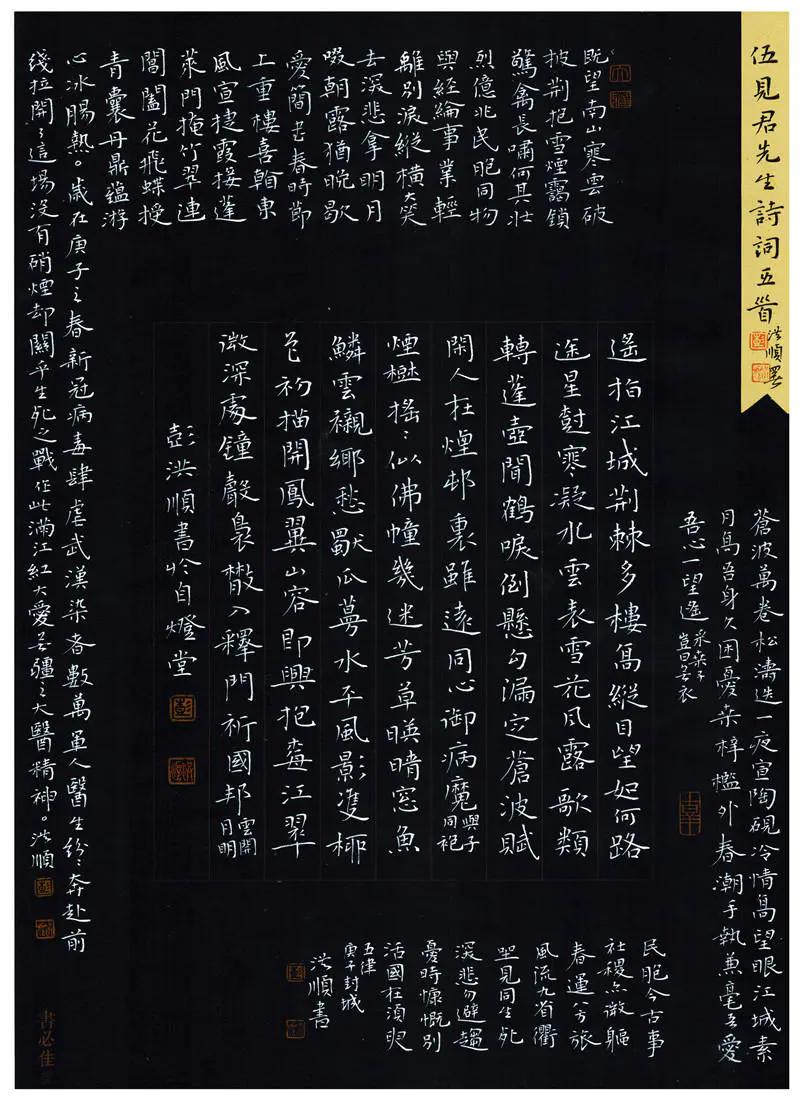 伍見君先生詩詞五首
洪順署
既望南山寒雲破
披荆抱雪煙靄鎖
驚禽長嘯何其壯
烈億兆民胞同物
與經綸事業輕
離別淚縱橫大哭
去深悲拿明月
啜朝露猶晚歇
愛簡書春時節
上重樓喜翰東
風宣捷霞接蓬
萊門掩竹翠連
閶闔花飛蝶授
青囊丹鼎蘊游
心冰腸熱。歲在庚子之春新冠病毒肆虐武漢染者數萬軍人醫生紛紛奔赴前
綫拉開了這場沒有硝煙却關乎生死之戰作此滿江紅大愛無疆之大醫精神。洪順
蒼波萬卷松濤迭一夜宣陶硯冷情高望眼江城素
月高吾身久困憂桑梓檻外春潮手執兼毫吾愛
吾心一望遙
采桑子
豈曰無衣
遙指江城荆棘多樓高縱目望如何路
途星對寒凝水雲表雪花風露歌類
轉蓬壺聞鶴唳倒懸勾漏定蒼波賦
閑人在煙邨裏雖遠同心御病魔
與子
同袍
煙樾搖搖似佛幢幾迷芳草暎晴窓魚
鱗雲襯鄉愁獸瓜蔓水平風影雙柳
色初描開鳳翼山容即興抱江翠
微深處鐘聲裊散入釋門祈國邦
雲開
月明
彭洪順書於自燈堂
民胞今古事
社稷亦微軀
春運八方旅
風流九省衢
坐見同生死
深悲勿避趨
憂時慷慨別
活國在須臾
五律
庚子封城
洪順書
書必佳